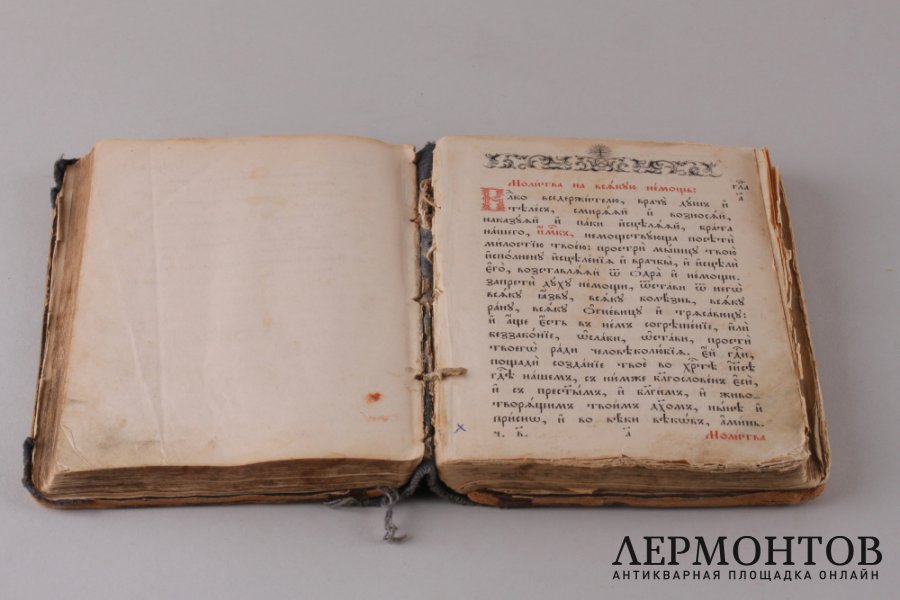 Моли́тва на всѧ́кꙋю не́мощь:
гл҃а
а҃
Влⷣко вседержи́телю, врачꙋ̀ дꙋ́шъ и҆
тѣле́съ, смирѧ́ѧй и҆ возносѧ́й,
наказꙋ́ѧй и҆ па́ки и҆сцѣлѧ́ѧй, бра́та
на́шего, и҆́м҃къ, немощствꙋ́юща посѣтѝ
ми́лостїю твое́ю: прострѝ мы́шцꙋ твою̀
и҆спо́лненꙋ и҆сцѣле́нїѧ и҆ врачбы̀, и҆ и҆сцѣлѝ
є҆го̀, возставлѧ́ѧй ѿ ѻ҆дра̀ и҆ не́мощи.
запретѝ дꙋ́хꙋ не́мощи, ѿста́ви ѿ негѡ̀
всѧ́кꙋ ꙗ҆́звꙋ, всѧ́кꙋ болѣ́знь, всѧ́кꙋ
ра́нꙋ, всѧ́кꙋ ѻ҆гневи́цꙋ и҆ трѧсави́цꙋ:
и҆ а҆́ще є҆́сть въ не́мъ согрѣше́нїе, и҆лѝ
беззако́нїе, ѡ҆сла́би, ѡ҆ста́ви, простѝ
твоегѡ̀ ра́ди человѣколю́бїѧ. є҆́й гдⷭ҇и,
пощадѝ созда́нїе твоѐ во хрⷭ҇тѣ̀ і҆и҃сѣ
гдⷭ҇ѣ на́шемъ, съ ни́мже блгⷭ҇ове́нъ є҆сѝ,
и҆ съ прест҃ы́мъ, и҆ бл҃ги́мъ, и҆ живо-
творѧ́щимъ твои́мъ дх҃омъ, ны́нѣ и҆
при́снѡ, и҆ во вѣ́ки вѣкѡ́въ, а҆ми́нь.
ч. в҃.
а҃
Моли́тва
ЛЕРМОНТОВ
АНТИКВАРНАЯ ПЛОЩАДКА ОНЛАЙН